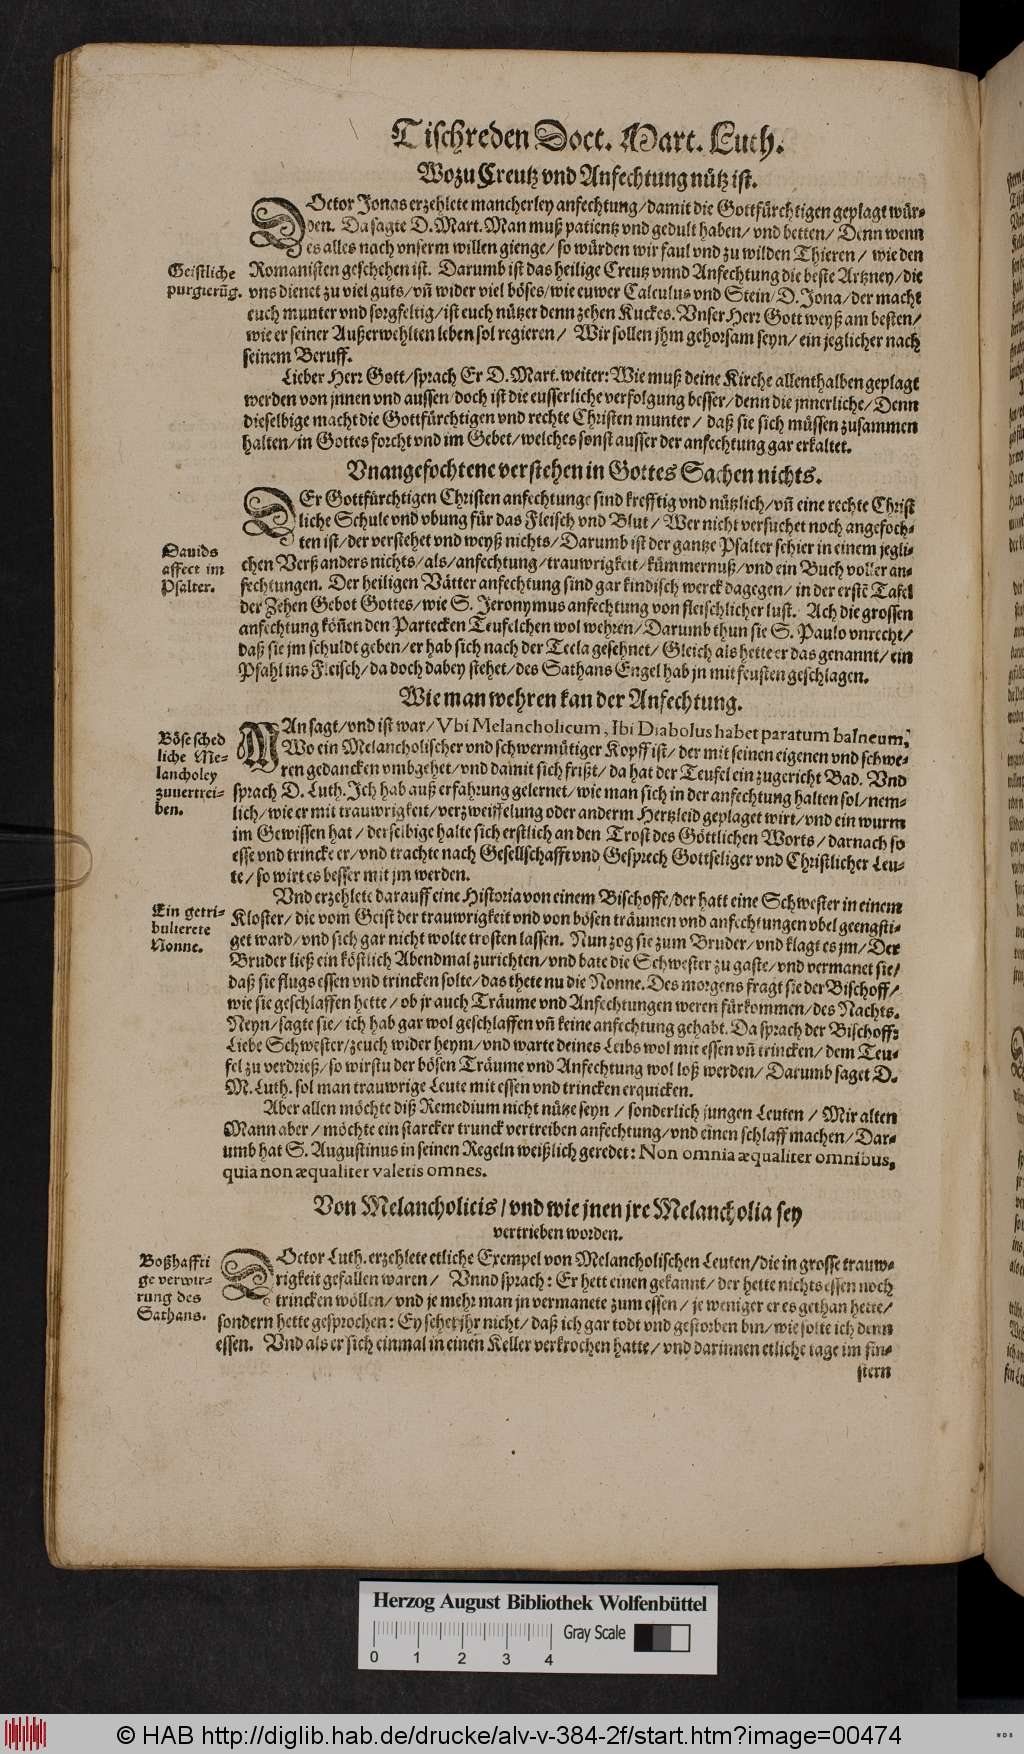 Tischreden Doct. Mart. Luth.
Wozu Creutz vnd Anfechtung nütz ist.
DOctor Jonas erzehlete mancherley anfechtung/ damit die Gottfürchtigen geplagt wür-
den. Da sagte D. Mart. Man muß patientz vnd gedult haben/ vnd betten/ Denn wenn
es alles nach vnserm willen gienge/ so würden wir faul vnd zu wilden Thieren/ wie den
Geistliche
purgierūg.
Romanisten geschehen ist. Darumb ist das heilige Creutz vnnd Anfechtung die beste Artzney/ die
vns dienet zu viel guts/ vn̄ wider viel böses/ wie euwer Calculus vnd Stein/ D. Jona/ der macht
euch munter vnd sorgfeltig/ ist euch nützer denn zehen Kuckes. Vnser Herr Gott weyß am besten/
wie er seiner Außerwehlten leben sol regieren/ Wir sollen jhm gehorsam seyn/ ein jeglicher nach
seinem Beruff.
Lieber Herr Gott/ sprach Er D. Mart. weiter: Wie muß deine Kirche allenthalben geplagt
werden von jnnen vnd aussen/ doch ist die eusserliche verfolgung besser/ denn die jnnerliche/ Denn
dieselbige macht die Gottfürchtigen vnd rechte Christen munter/ daß sie sich müssen zusammen
halten/ in Gottes forcht vnd im Gebet/ welches sonst ausser der anfechtung gar erkaltet.
Vnangefochtene verstehen in Gottes Sachen nichts.
DEr Gottfürchtigen Christen anfechtunge sind krefftig vnd nützlich/ vn̄ eine rechte Christ
liche Schule vnd vbung für das Fleisch vnd Blut/ Wer nicht versuchet noch angefoch-
ten ist/ der verstehet vnd weyß nichts/ Darumb ist der gantze Psalter schier in einem jegli-
Dauids
affect im
Psalter.
chen Verß anders nichts/ als/ anfechtung/ trauwrigkeit/ kümmernuß/ vnd ein Buch voller an-
fechtungen. Der heiligen Vätter anfechtung sind gar kindisch werck dagegen/ in der erstē Tafel
der Zehen Gebot Gottes/ wie S. Jeronymus anfechtung von fleischlicher lust. Ach die grossen
anfechtung kön̄en den Partecken Teufelchen wol wehren/ Darumb thun sie S. Paulo vnrecht/
daß sie jm schuldt geben/ er hab sich nach der Tecla gesehnet/ Gleich als hette er das genannt/ ein
Pfahl ins Fleisch/ da doch dabey stehet/ des Sathans Engel hab jn mit feusten geschlagen.
Wie man wehren kan der Anfechtung.
MAn sagt/ vnd ist war/ Vbi Melancholicum, Ibi Diabolus habet paratum balneum,
Böse sched
liche Me-
lancholey
zuuertrei-
ben.
Wo ein Melancholischer vnd schwermütiger Kopff ist/ der mit seinen eigenen vnd schwe-
ren gedancken vmbgehet/ vnd damit sich frißt/ da hat der Teufel ein zugericht Bad. Vnd
sprach D. Luth. Ich hab auß erfahrung gelernet/ wie man sich in der anfechtung halten sol/ nem-
lich/ wie er mit trauwrigkeit/ verzweiffelung oder anderm Hertzleid geplaget wirt/ vnd ein wurm
im Gewissen hat/ derselbige halte sich erstlich an den Trost des Göttlichen Worts/ darnach so
esse vnd trincke er/ vnd trachte nach Gesellschafft vnd Gesprech Gottseliger vnd Christlicher Leu-
te/ so wirt es besser mit jm werden.
Vnd erzehlete darauff eine Historia von einem Bischoffe/ der hatt eine Schwester in einem
Ein getri-
bulierete
Nonne.
Kloster/ die vom Geist der trauwrigkeit vnd von bösen träumen vnd anfechtungen vbel geengsti-
get ward/ vnd sich gar nicht wolte trosten lassen. Nun zog sie zum Bruder/ vnd klagt es jm/ Der
Bruder ließ ein köstlich Abendmal zurichten/ vnd bate die Schwester zu gaste/ vnd vermanet sie/
daß sie flugs essen vnd trincken solte/ das thete nu die Nonne. Des morgens fragt sie der Bischoff/
wie sie geschlaffen hette/ ob jr auch Träume vnd Anfechtungen weren fürkommen/ des Nachts.
Neyn/ sagte sie/ ich hab gar wol geschlaffen vn̄ keine anfechtung gehabt. Da sprach der Bischoff:
Liebe Schwester/ zeuch wider heym/ vnd warte deines Leibs wol mit essen vn̄ trincken/ dem Teu-
fel zu verdrieß/ so wirstu der bösen Träume vnd Anfechtung wol loß werden/ Darumb saget D.
M. Luth. sol man trauwrige Leute mit essen vnd trincken erquicken.
Aber allen möchte diß Remedium nicht nütze seyn/ sonderlich jungen Leuten/ Mir alten
Mann aber/ möchte ein starcker trunck vertreiben anfechtung/ vnd einen schlaff machen/ Dar-
umb hat S. Augustinus in seinen Regeln weißlich geredet: Non omnia æqualiter omnibus,
quia non æqualiter valetis omnes.
Von Melancholicis/ vnd wie jnen jre Melancholia sey
vertrieben worden.
Boßhaffti
ge verwir-
rung des
Sathans.
DOctor Luth. erzehlete etliche Exempel von Melancholischen Leuten/ die in grosse trauw-
rigkeit gefallen waren/ Vnnd sprach: Er hett einen gekannt/ der hette nichts essen noch
trincken wöllen/ vnd je mehr man jn vermanete zum essen/ je weniger er es gethan hette/
sondern hette gesprochen: Ey sehet jhr nicht/ daß ich gar todt vnd gestorben bin/ wie solte ich denn
essen. Vnd als er sich einmal in einen Keller verkrochen hatte/ vnd darinnen etliche tage im fin-
stern
Herzog August Bibliothek Wolfenbüttel
0 1 2 3 4
Gray Scale
© HAB http://diglib.hab.de/drucke/alv-v-384-2f/start.htm?image=00474